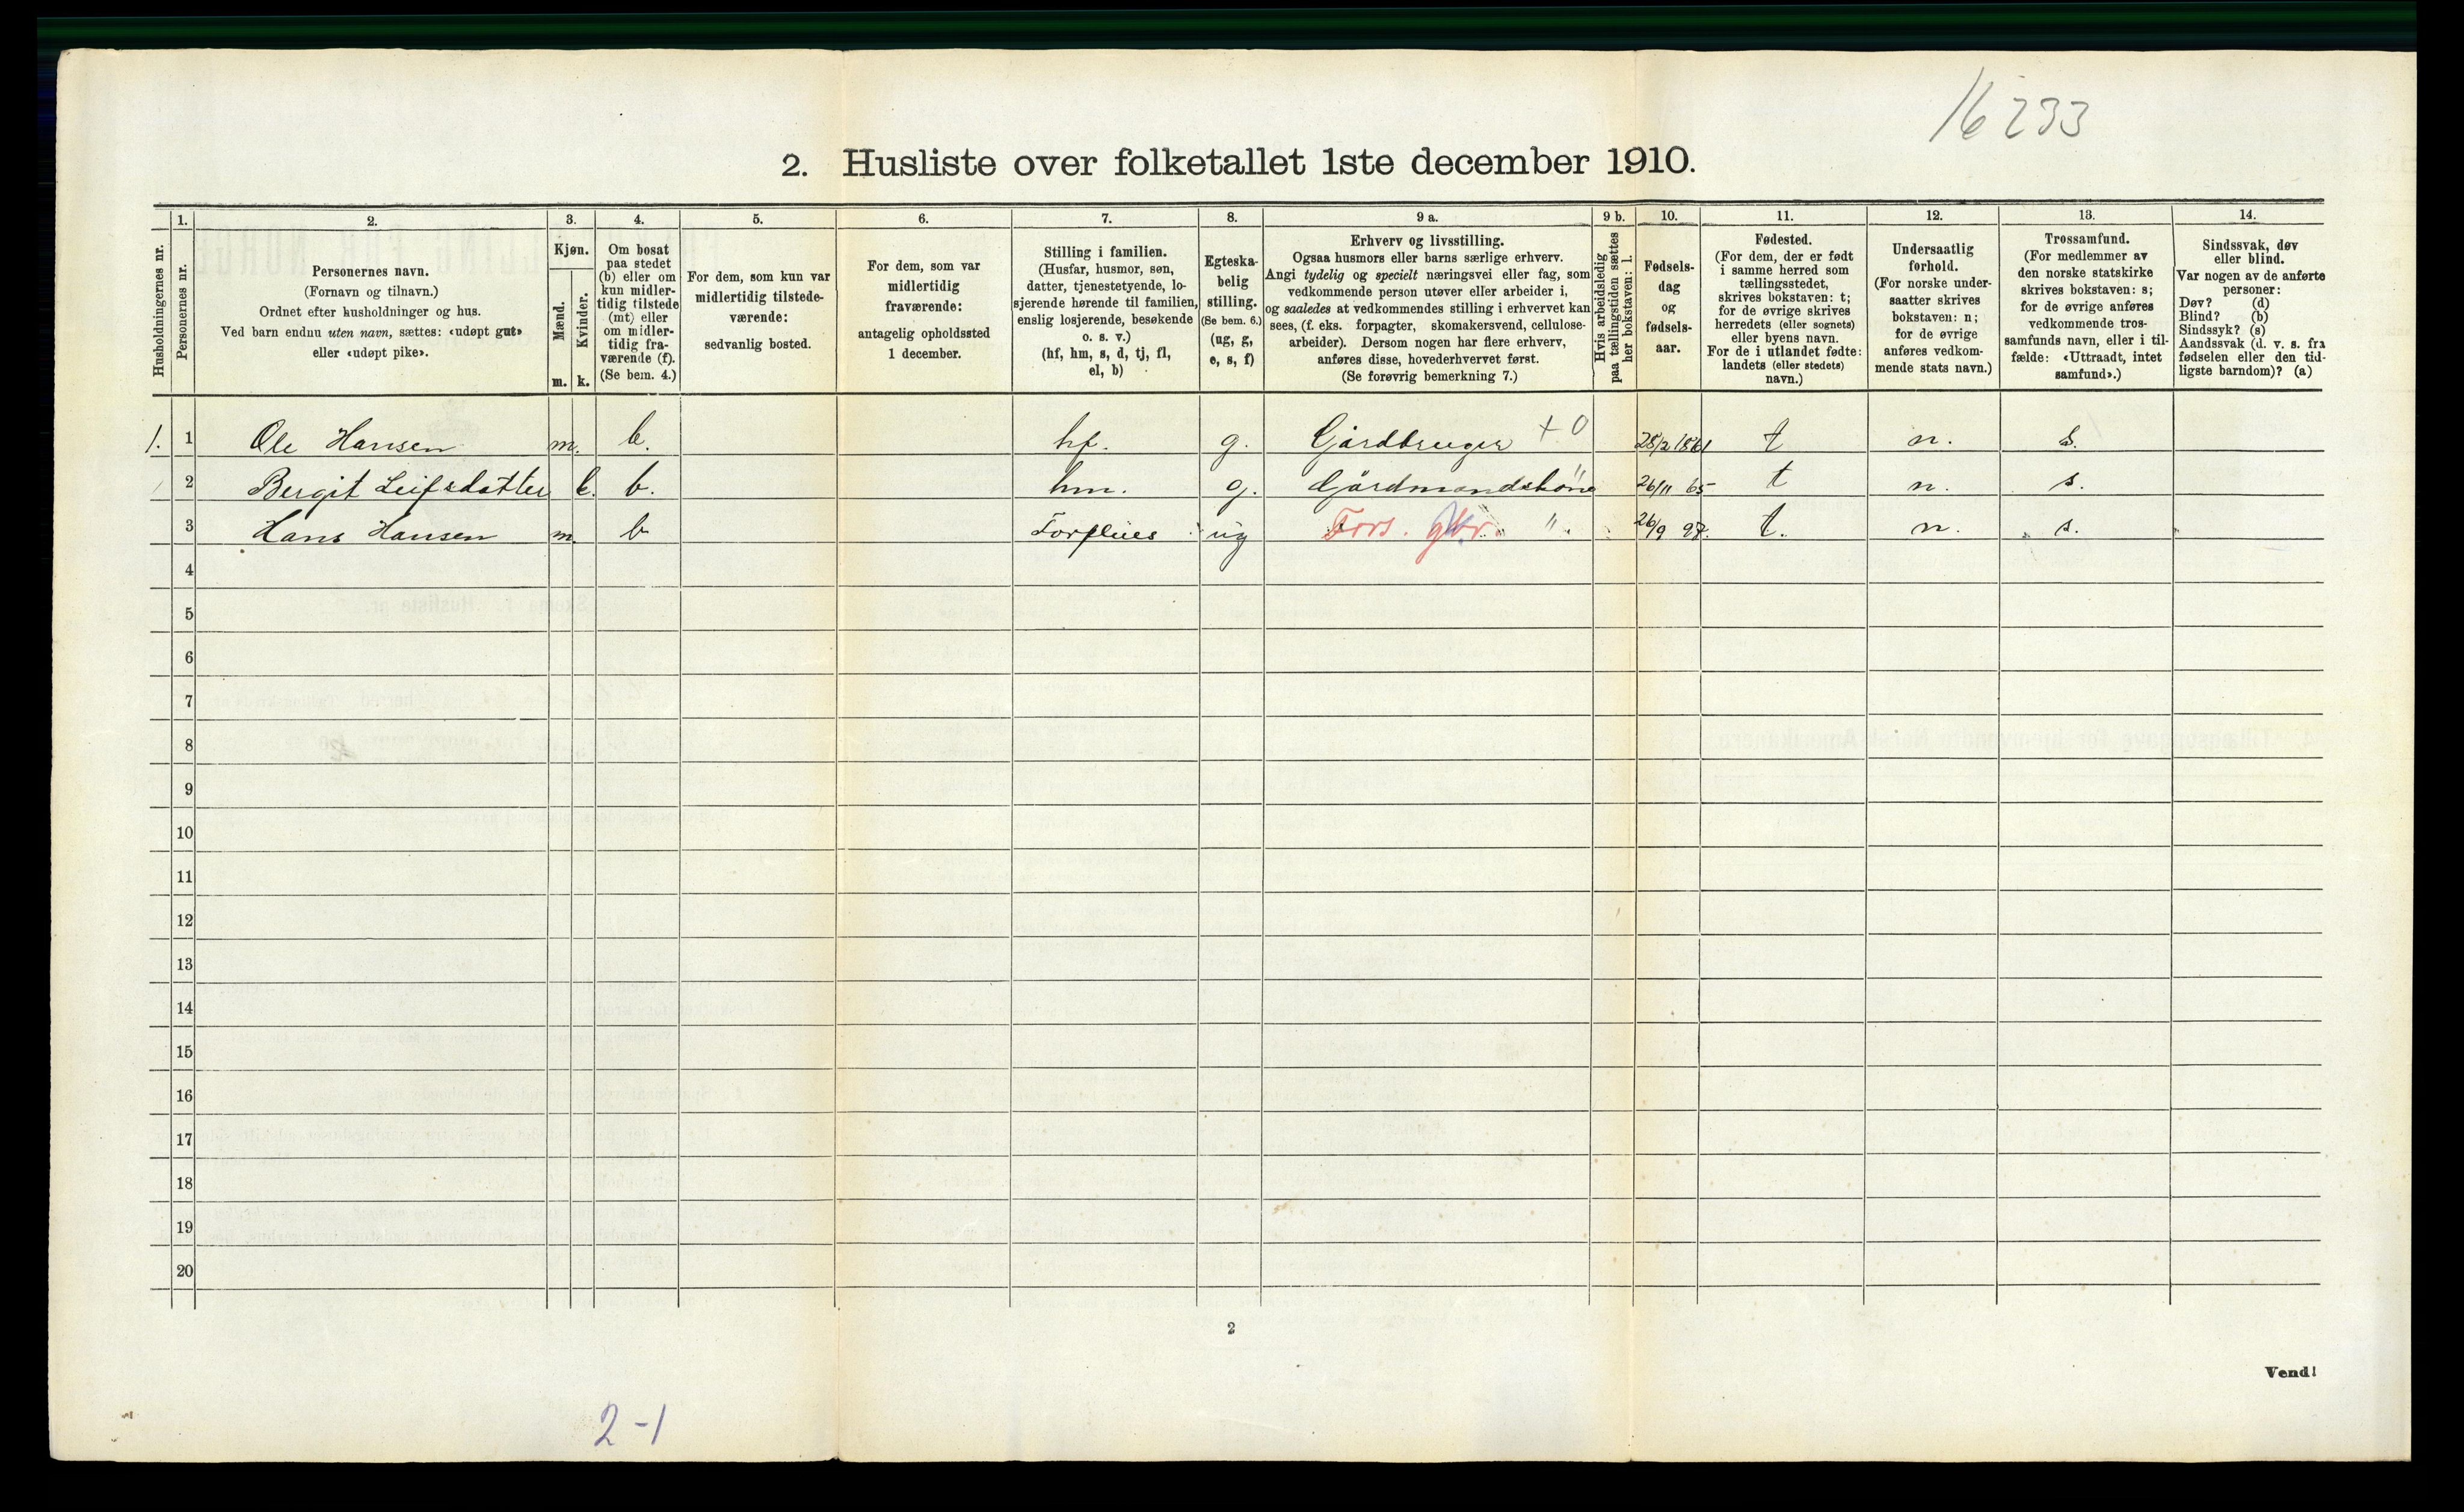 16233
2. Husliste over folketallet 1ste december 1910.
Husholdningernes nr.
1.
Personernes nr.
2.
Personernes navn.
(Fornavn og tilnavn.)
Ordnet efter husholdninger og hus.
Ved barn endnu uten navn, sættes: «udøpt gut»
eller «udøpt pike».
3.
Kjøn.
Mænd.
Kvinder.
m. k.
4.
Om bosat
paa stedet
(b) eller om
kun midler-
tidig tilstede
(mt) eller
om midler-
tidig fra-
værende (f).
(Se bem. 4.)
5.
For dem, som kun var
midlertidig tilstede-
værende:
sedvanlig bosted.
6.
For dem, som var
midlertidig
fraværende:
antagelig opholdssted
1 december.
7.
Stilling i familien.
(Husfar, husmor, søn,
datter, tjenestetyende, lo-
sjerende hørende til familien,
enslig losjerende, besøkende
o. s. v.)
(hf, hm, s, d, tj, fl,
el, b)
8.
Egteska-
belig
stilling.
(Se bem. 6.)
(ug, g,
e, s, f)
9 a.
Erhverv og livsstilling.
Ogsaa husmors eller barns særlige erhverv.
Angi tydelig og specielt næringsvei eller fag, som
vedkommende person utøver eller arbeider i,
og saaledes at vedkommendes stilling i erhvervet kan
sees, (f. eks. forpagter, skomakersvend, cellulose-
arbeider). Dersom nogen har flere erhverv,
anføres disse, hovederhvervet først.
(Se forøvrig bemerkning 7.)
9 b.
Hvis arbeidsledig
paa tællingstiden sættes
her bokstaven: l.
10.
Fødsels-
dag
og
fødsels-
aar.
11.
Fødested.
(For dem, der er født
i samme herred som
tællingsstedet,
skrives bokstaven: t;
for de øvrige skrives
herredets (eller sognets)
eller byens navn.
For de i utlandet fødte:
landets (eller stedets)
navn.)
12.
Undersaatlig
forhold.
(For norske under-
saatter skrives
bokstaven: n;
for de øvrige
anføres vedkom-
mende stats navn.)
13.
Trossamfund.
(For medlemmer av
den norske statskirke
skrives bokstaven: s;
for de øvrige anføres
vedkommende tros-
samfunds navn, eller i til-
fælde: «Uttraadt, intet
samfund».)
14.
Sindssvak, døv
eller blind.
Var nogen av de anførte
personer:
Døv? (d)
Blind? (b)
Sindssyk? (s)
Aandssvak (d. v. s. fra
fødselen eller den tid-
ligste barndom)? (a)
1. 1 Ole Hansen m. b. hf. g. Gårdbruger + 0 28/2 1861 t n. s.
2 Bergit Leifsdatter k. b. hm. g. Gårdmandskone 26/11 65 t n. s.
3 Hans Hansen m. b ug Fors. gbr. " 26/9 97. t. n. s.
4
5
6
7
8
9
10
11
12
13
14
15
16
17
18
19
20
2
Vend!
2-1